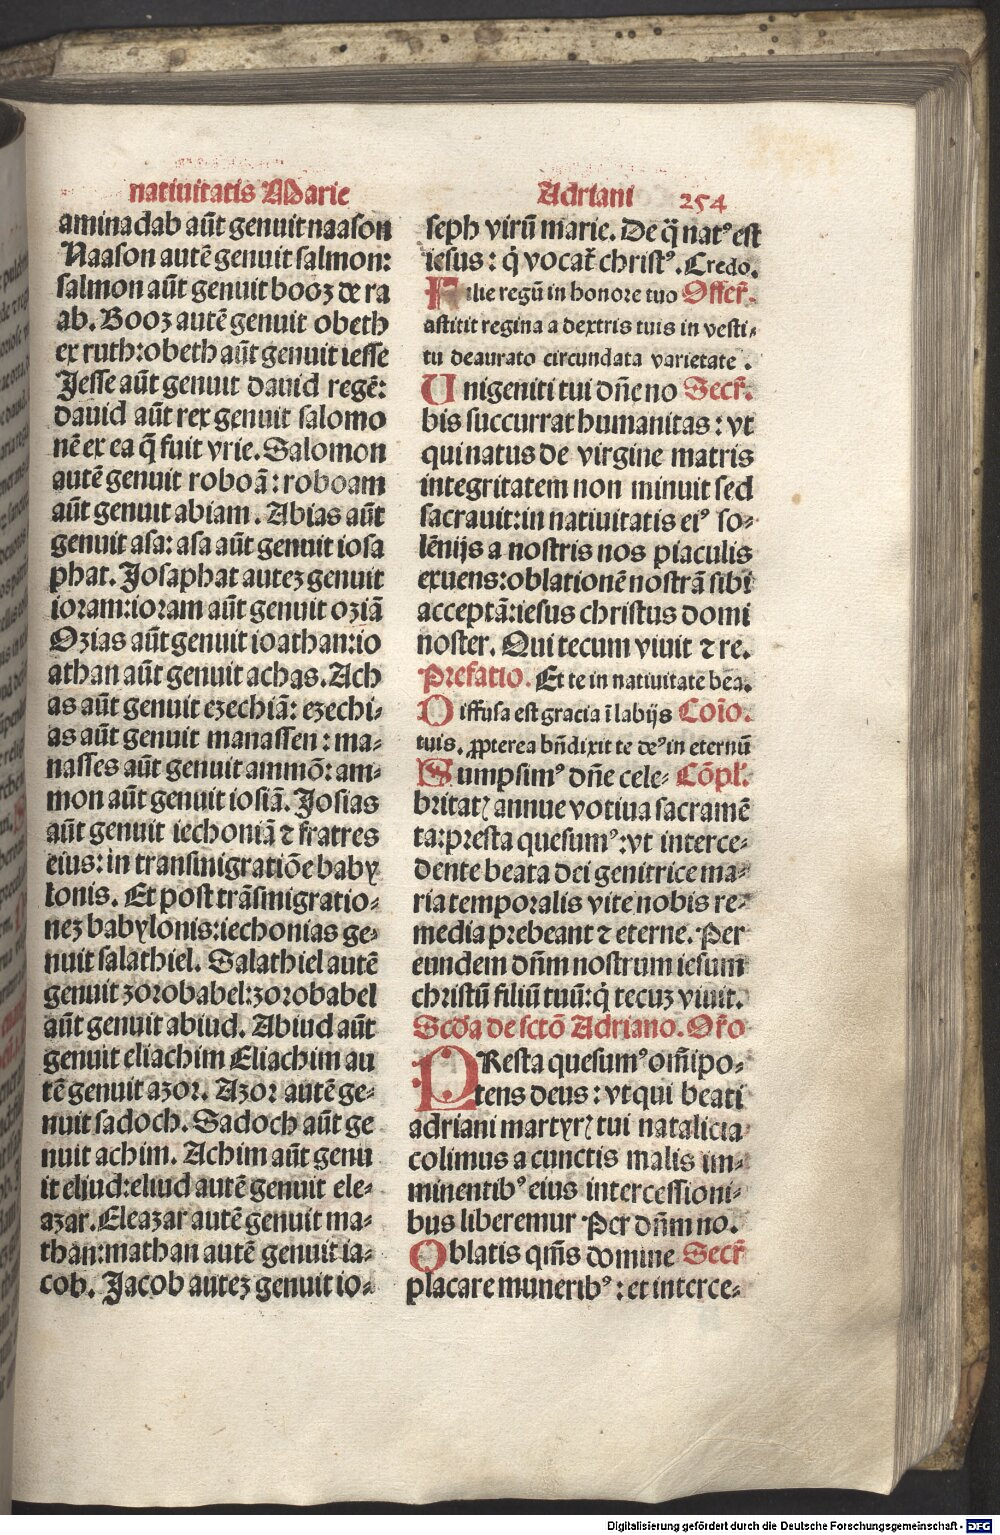 nativitatis Marie
aminadab aūt genuit naason
Naason autē genuit salmon:
salmon aūt genuit booz ⁊ de ra
ab. Booz autē genuit obeth
ex ruth: obeth aūt genuit iesse
Jesse aūt genuit dauid regē:
dauid aūt rex genuit salomo
nē ex ea q̄ fuit vrie. Salomon
autē genuit roboā: roboam
aūt genuit abiam. Abias aūt
genuit asa: asa aūt genuit iosa
phat. Josaphat autez genuit
ioram: ioram aūt genuit oziā
Ozias aūt genuit ioathan: io
athan aūt genuit achas. Ach
as aūt genuit ezechiā: ezechi⸗
as aūt genuit manassen: ma⸗
nasses aūt genuit ammō: am⸗
mon aūt genuit iosiā. Josias
aūt genuit iechoniā ⁊ fratres
eius: in transmigratiōe baby
lonis. Et post trāsmigratio⸗
nez babylonis: iechonias ge⸗
nuit salathiel. Salathiel autē
genuit zorobabel: zorobabel
aūt genuit abiud. Abiud aūt
genuit eliachim Eliachim au
tē genuit azor. Azor autē ge⸗
nuit sadoch. Sadoch aūt ge
nuit achim. Achim aūt genu
it eliud: eliud autē genuit ele⸗
azar. Eleazar autē genuit ma⸗
than: mathan autē genuit ia⸗
cob. Jacob autez genuit io⸗
Adriani 254
seph virū marie. De q̄ natꝰ est
iesus: q̇ vocat̄ christꝰ. Credo.
Filie regū in honore tuo Offer̄.
astitit regina a dextris tuis in vesti⸗
tu deaurato circundata varietate.
Unigeniti tui dn̄e no Secr̄.
bis succurrat humanitas: vt
qui natus de virgine matris
integritatem non minuit sed
sacrauit: in natiuitatis eiꝰ so⸗
lēnijs a nostris nos piaculis
exuens: oblationē nostrā sibi
acceptā: iesus christus domi
noster. Qui tecum viuit ⁊ re.
Prefatio. Et te in natiuitate bea.
Diffusa est gracia ī labijs Cōīo.
tuis. ꝓpterea bn̄dixit te deꝰ in eternū
Sumpsimꝰ dn̄e cele⸗ Cōpl̄.
britatꝭ annue votiua sacramē
ta: presta quesumꝰ: vt interce⸗
dente beata dei genitrice ma⸗
ria temporalis vite nobis re⸗
media prebeant ⁊ eterne. Per
eundem dn̄m nostrum iesum
christū filiū tuū: q̇ tecuz viuit.
Scd̄a de sctō Adriano. Or̄o
PResta quesumꝰ om̄ipo⸗
tens deus: vt qui beati
adriani martyrꝭ tui natalicia
colimus a cunctis malis im⸗
minentibꝰ eius intercessioni⸗
bus liberemur Per dn̄m no.
Oblatis qm̄s domine Secr̄
placare muneribꝰ: et interce⸗
Digitalisierung gefördert durch die Deutsche Forschungsgemeinschaft - DFG